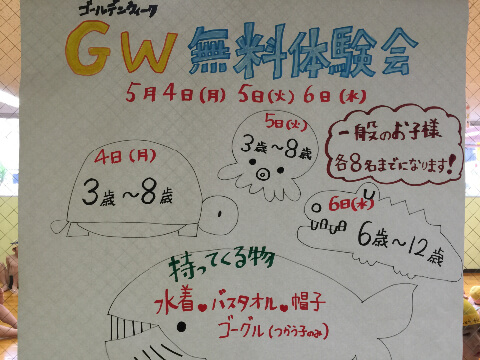 ゴールデンウィーク
GW 無料体験会
5月4日(月) 5日(火) 6日(水)
5日(火)
3歳〜8歳
一般のお子様
各8名までになります!
4日(月)
3歳〜8歳
6日(水)
6歳〜12歳
持ってくる物
水着♥バスタオル♥帽子
ゴーグル(つかう子のみ)